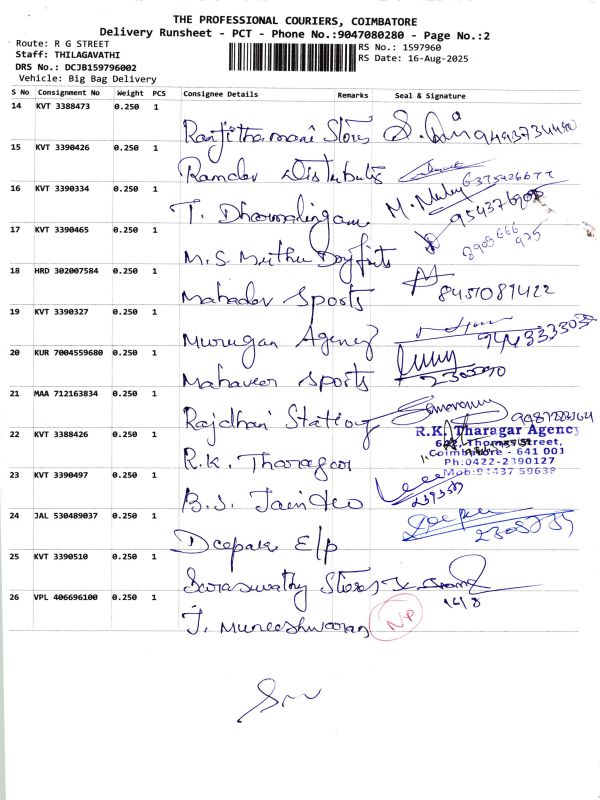 THE PROFESSIONAL COURIERS, COIMBATORE
Delivery Runsheet - PCT - Phone No.:9047080280 - Page No.:2
Route: R G STREET
Staff: THILAGAVATHI
DRS No.: DCJB159796002
Vehicle: Big Bag Delivery
RS No.: 1597960
RS Date: 16-Aug-2025
S No Consignment No Weight PCS Consignee Details Remarks Seal & Signature
14 KVT 3388473 0.250 1
Ranjithamani Stores
15 KVT 3390426 0.250 1
Ramdev Distributis
16 KVT 3390334 0.250 1
T. Dharmalingam M.
17 KVT 3390465 0.250 1
M.S Muthu
18 HRD 302007584 0.250 1
Mahadev Sports 8451089422
19 KVT 3390327 0.250 1
Murugan Agency
20 KUR 7004559680 0.250 1
Mahaveer Sports
21 MAA 712163834 0.250 1
Rajdhani
22 KVT 3388426 0.250 1
R.K. Tharagar
R.K. Tharagar Agency
Thomas Street,
Coimbatore - 641 001
Ph:0422-2390127
Mob:94437 59638
23 KVT 3390497 0.250 1
B.S. Jain &co
24 JAL 530489037 0.250 1
Deepak E/p
25 KVT 3390510 0.250 1
Saraswathy Stores
16/8
26 VPL 406696100 0.250 1
J. Muneeshwaran NP